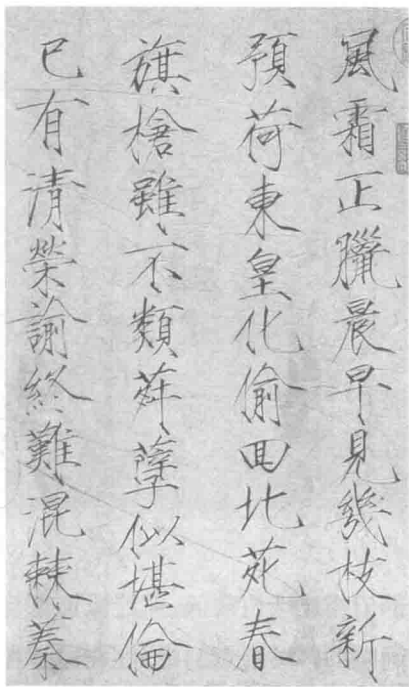 風霜正臘晨早見幾枝新
預荷東皇化偷回北苑春
旗槍雖不類荈孽似堪倫
已有清榮諭終難混棘蓁